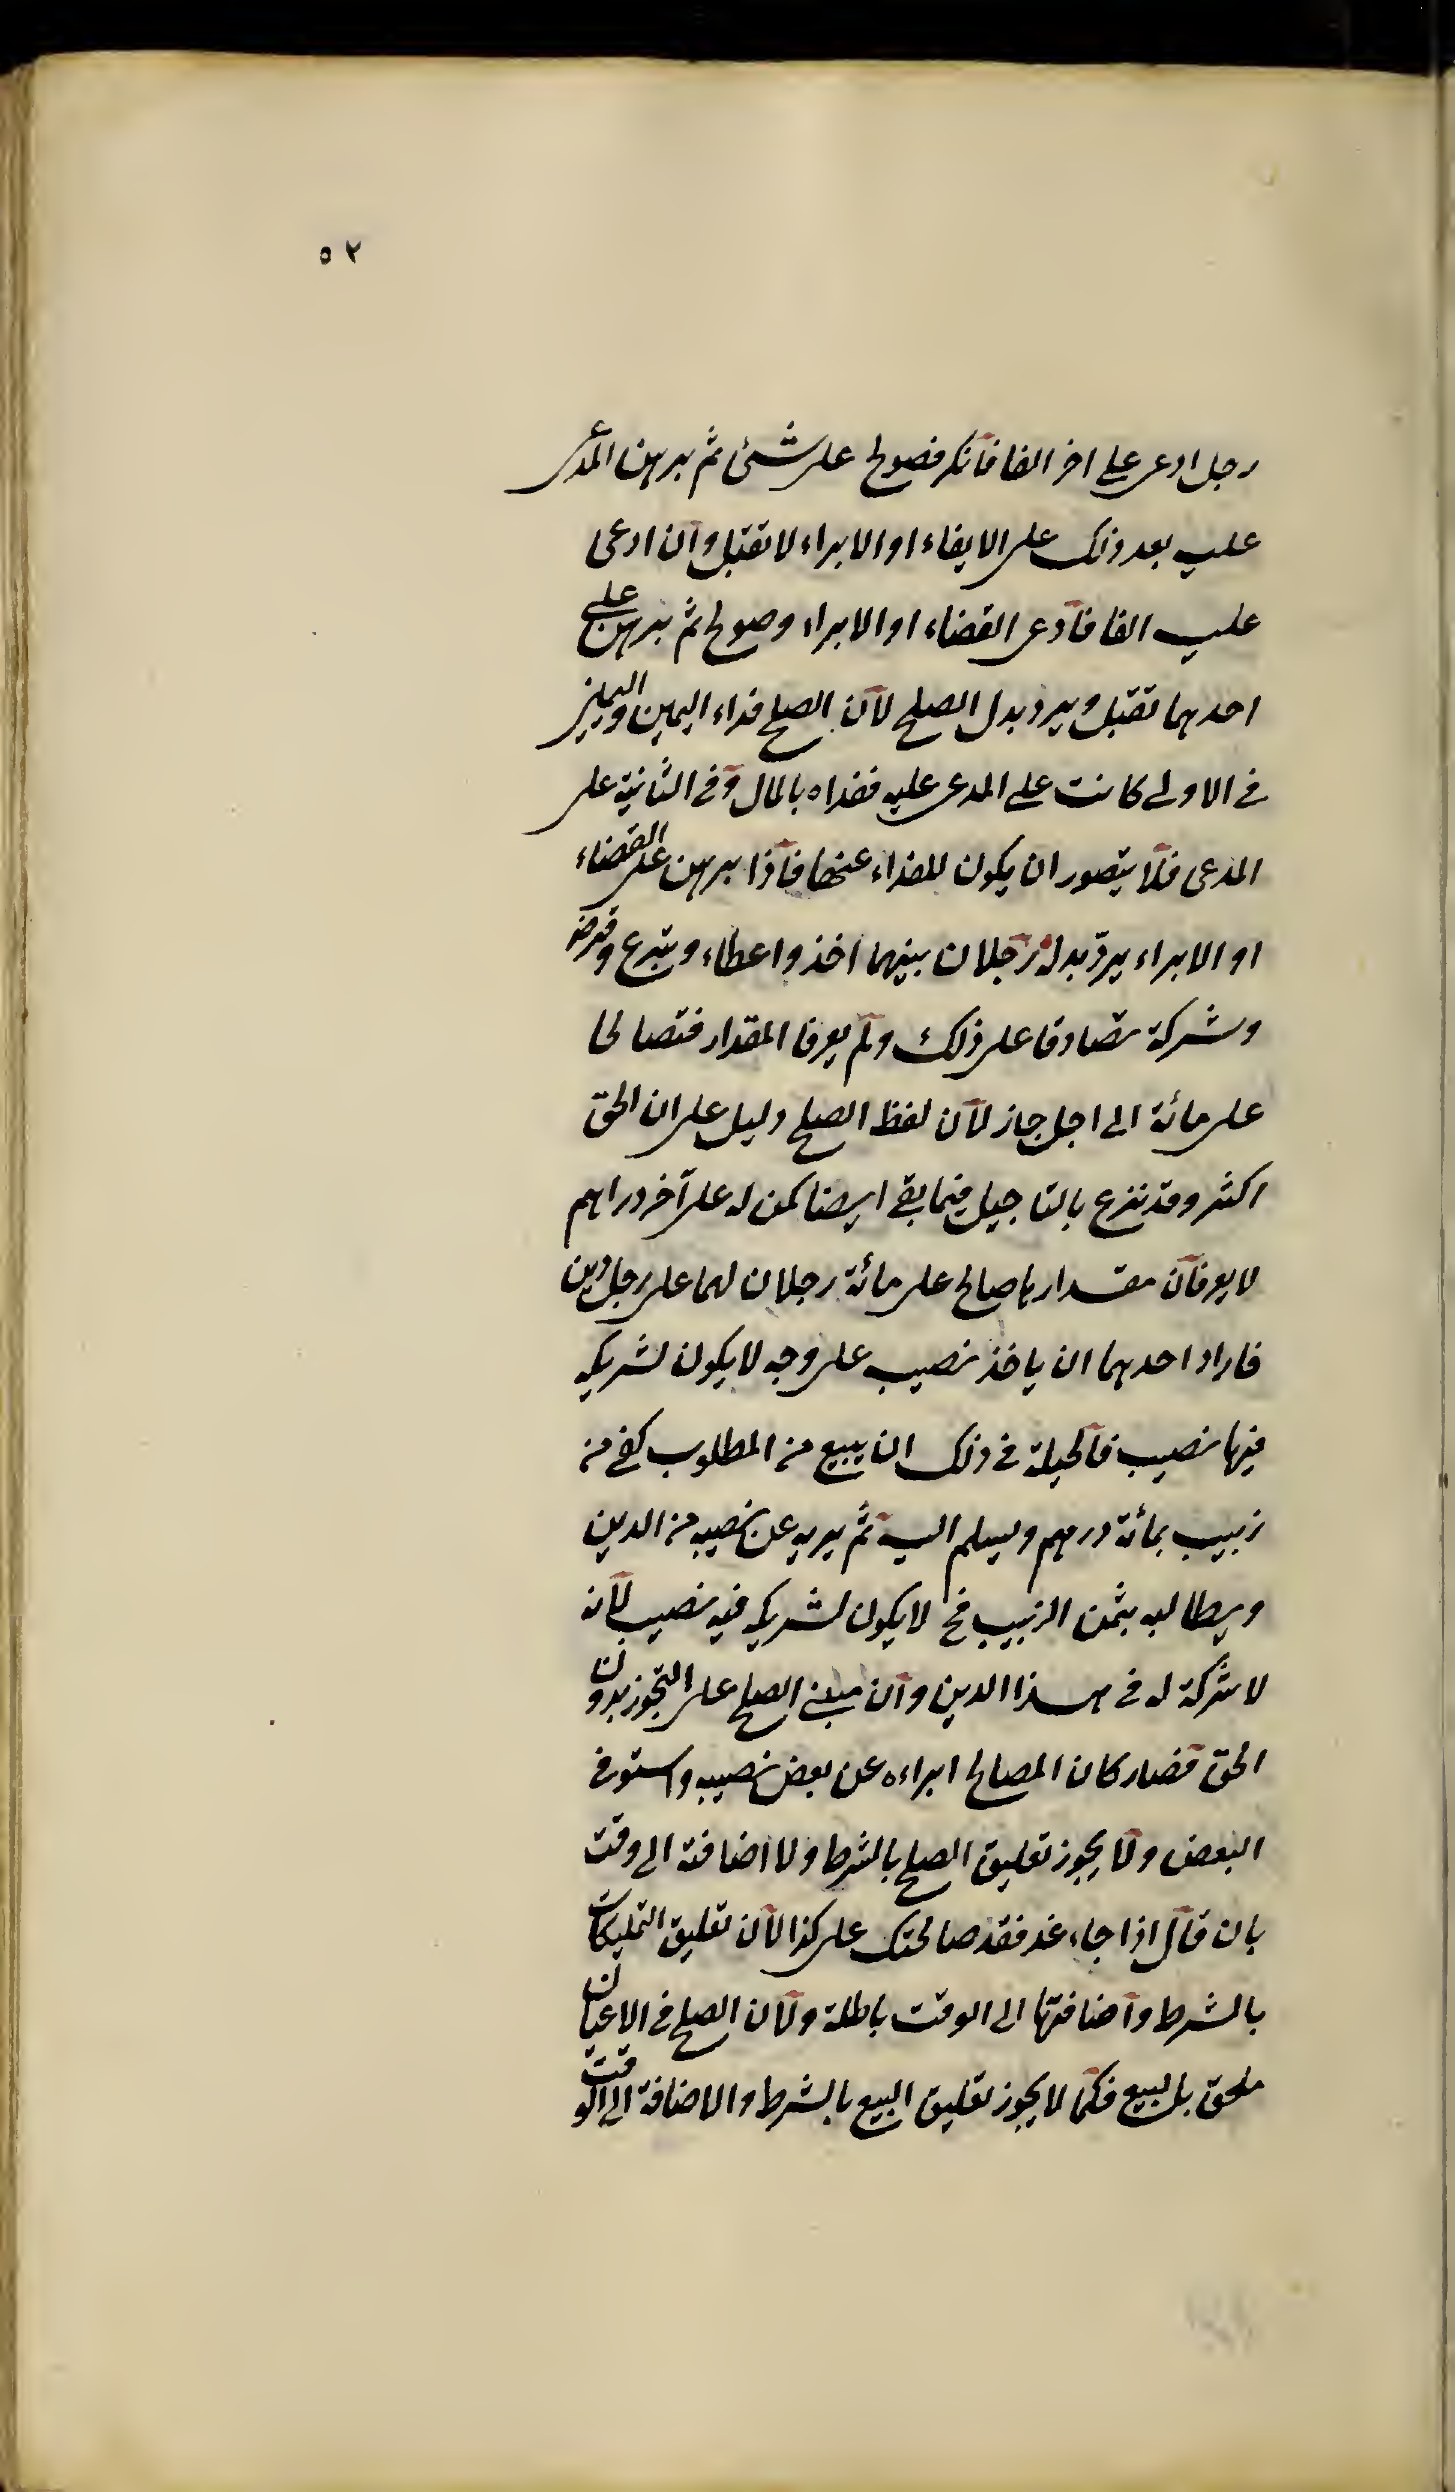 ٥٢
رجل ادعى على اخر الفا فانكر فصولح على شئ ثم برهن المدعى
عليه بعد ذلك على الايفاء او الابراء لا تقبل وان ادعى
عليه الفا فادعى القضاء او الابراء وصولح ثم برهن على
احدهما تقبل ويرد بدل الصلح لان الصلح فداء اليمين واليمين
في الاولى كانت على المدعى عليه ففداه بالمال وفي الثانية على
المدعى فلا يتصور ان يكون للفداء عنها فاذا برهن على القضاء
او الابراء يرد بدله رجلان بينهما اخذ واعطاء وتبرع وقرض
وشركة تصادقا على ذلك ولم يعرفا المقدار فتصالحا
على مائة الى اجل جاز لان لفظ الصلح دليل على ان الحق
اكثر وقد تبرع بالتاجيل فيما بقي ايضا كمن له على آخر دراهم
لا يعرفان مقدارها صالح على مائة رجلان لهما على رجل دين
فاراد احدهما ان ياخذ نصيبه على وجه لا يكون لشريكه
فيها نصيب فالحيلة في ذلك ان يبيع من المطلوب كفى من
زبيب بمائة درهم ويسلم اليه ثم يبريه عن نصيبه من الدين
ويطالبه بثمن الزبيب فح لا يكون لشريكه فيه نصيب لانه
لا شركة له في هذا الدين وان مبنى الصلح على التجوز بدون
الحق فصار كان المصالح ابراءه عن بعض نصيبه واستوفى
البعض ولا يجوز تعليق الصلح بالشرط ولا اضافته الى وقت
بان قال اذا جاء غد فقد صالحتك على كذا لان تعليق التمليكات
بالشرط واضافتها الى الوقت باطلة ولان الصلح في الاعيان
ملحق بالبيع فكما لا يجوز تعليق البيع بالشرط والاضافة الى الوقت